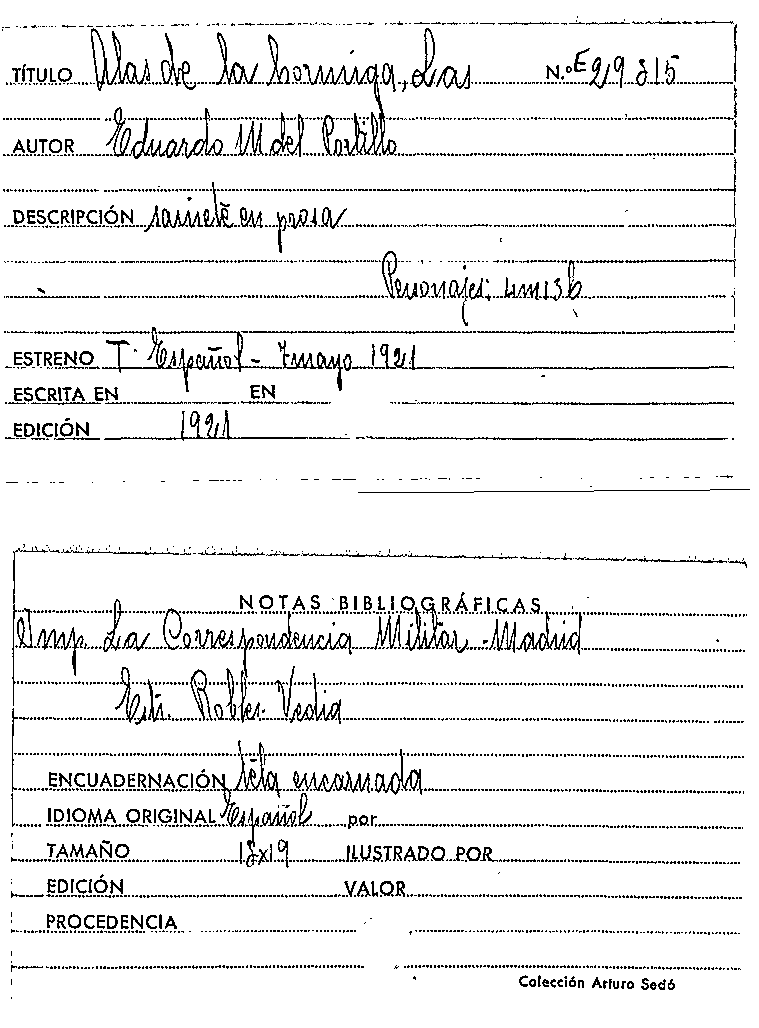 TÍTULO Alas de la hormiga, Las N.º E 29815
AUTOR Eduardo M del Portillo
DESCRIPCIÓN sainete en prosa
Personajes: 4m13h
ESTRENO T. Español - 7 mayo 1921
ESCRITA EN EN
EDICIÓN 1921
NOTAS BIBLIOGRÁFICAS
Imp. La Correspondencia Militar - Madrid
Estr. Robles-Vedia
ENCUADERNACIÓN tela encarnada
IDIOMA ORIGINAL Español por
TAMAÑO 13x19 ILUSTRADO POR
EDICIÓN VALOR
PROCEDENCIA
Colección Arturo Sedó